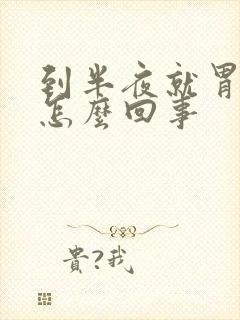 到半夜就胃
怎麼回事
貴?我